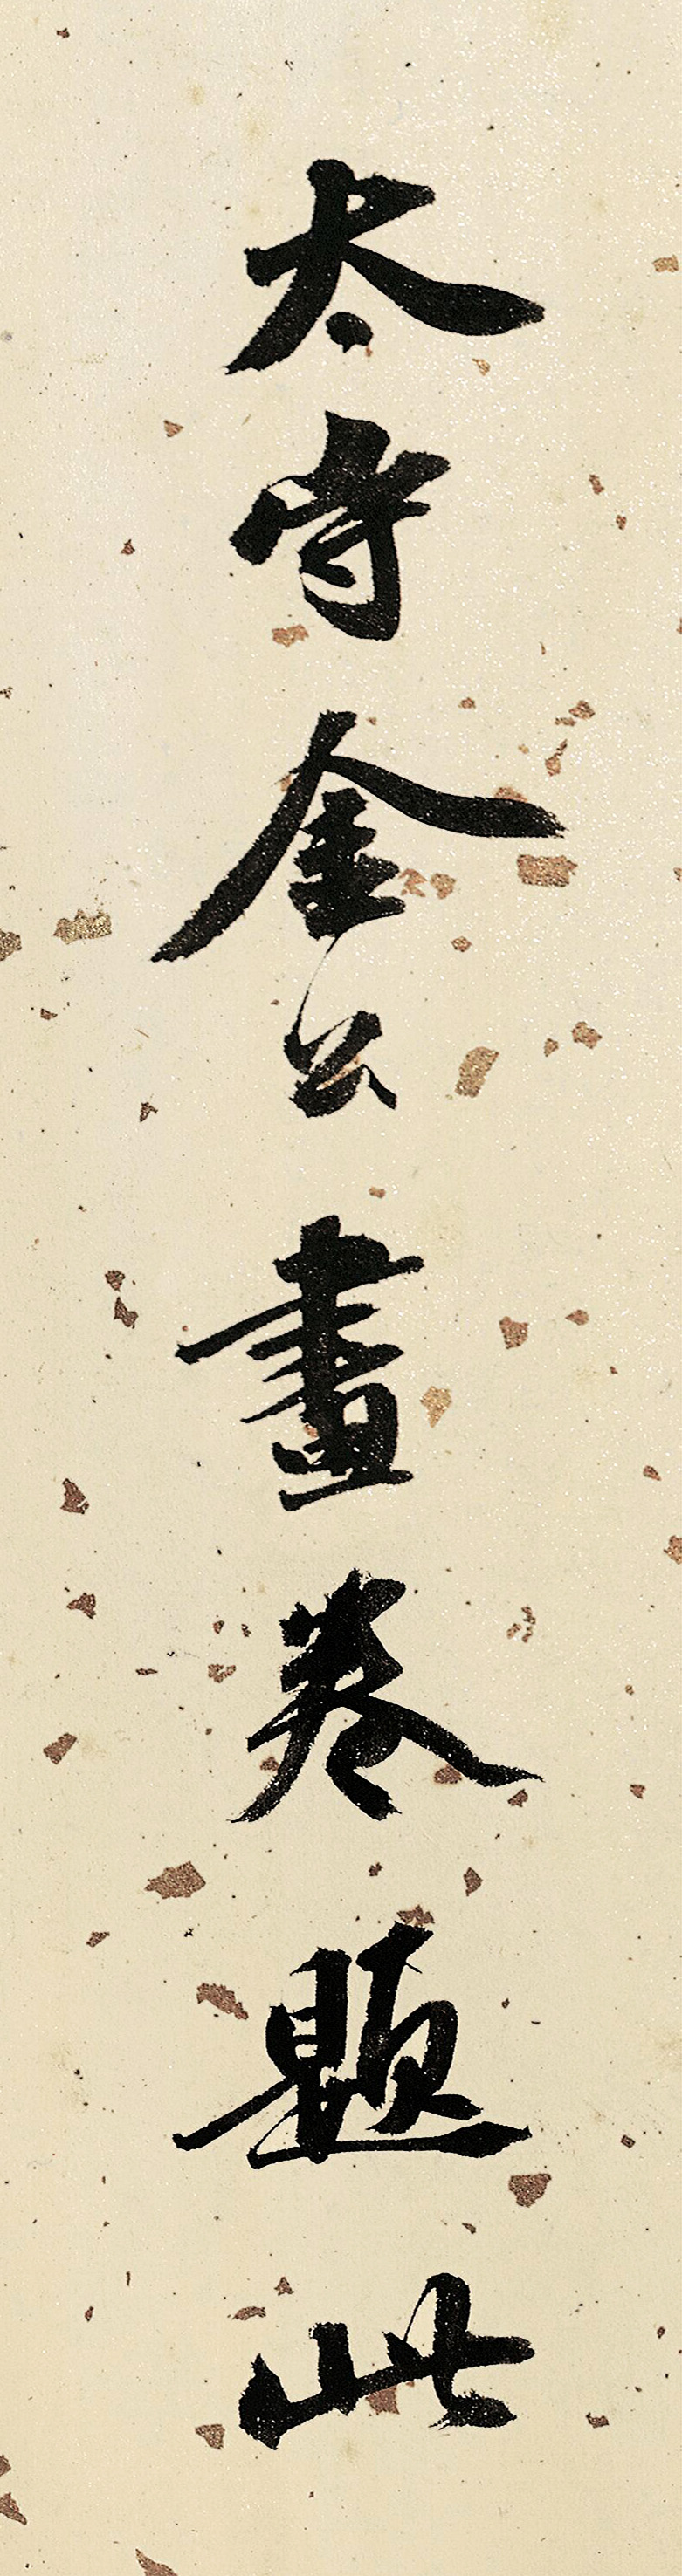 太守金公畫卷題此